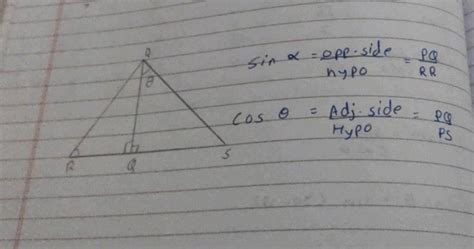 P
θ
R
Q
S
Sin α = opp. side / hypo = PQ / RR
Cos θ = Adj. side / Hypo = PQ / PS